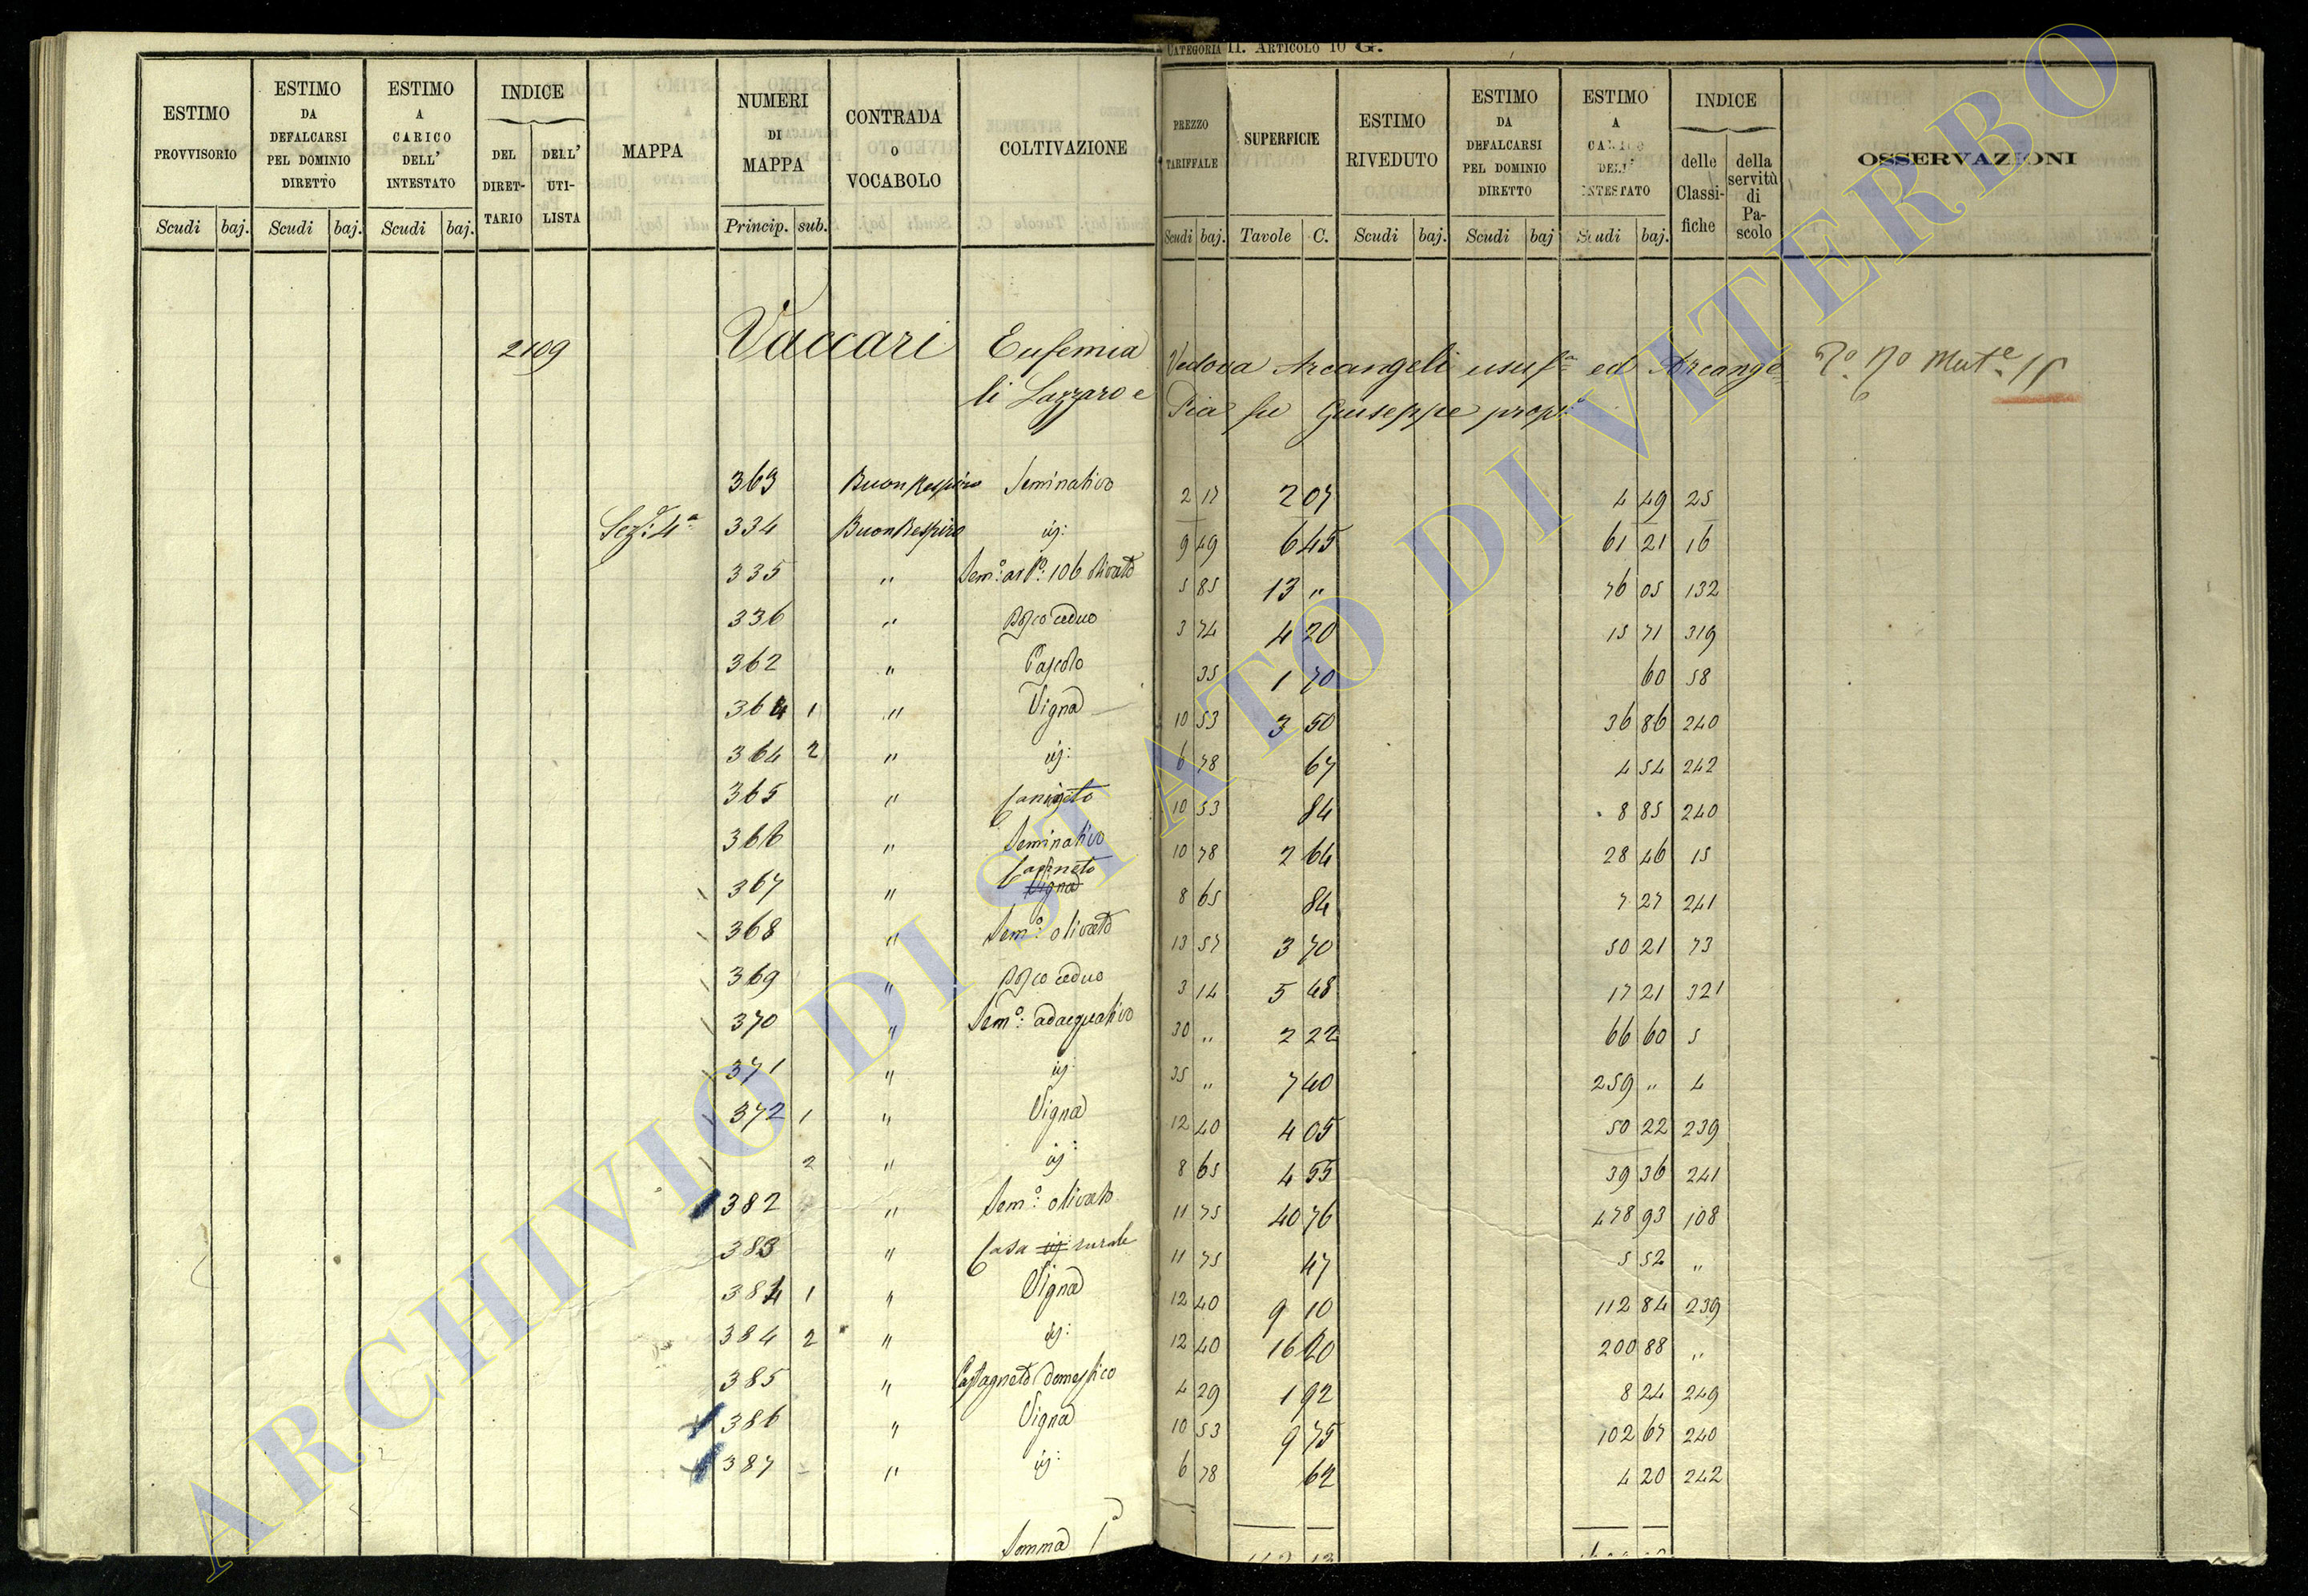 CATEGORIA II. ARTICOLO 10 G.
ESTIMO PROVVISORIO Scudi baj.
ESTIMO DA DEFALCARSI PEL DOMINIO DIRETTO Scudi baj.
ESTIMO A CARICO DELL' INTESTATO Scudi baj.
INDICE DEL DIRETTARIO DELL' UTILISTA
MAPPA
NUMERI DI MAPPA Princip. sub.
CONTRADA O VOCABOLO
COLTIVAZIONE
PREZZO TARIFFALE Scudi baj.
SUPERFICIE Tavole C.
ESTIMO RIVEDUTO Scudi baj.
ESTIMO DA DEFALCARSI PEL DOMINIO DIRETTO Scudi baj
ESTIMO A CARICO DELL' INTESTATO Scudi baj.
INDICE delle Classifiche della servitù di Pascolo
OSSERVAZIONI
2109 Vaccari Eufemia Vedova Arcangeli usuf.a ed Arcange
li Lazzaro e Pia fu Giuseppe prop.
363 Buon Respiro Seminativo 2 17 2 07 4 49 25
Sez: 4a 334 Buon Respiro id: 9 49 6 45 61 21 16
335 " Sem.o: ar P.o: 106 olivato 5 85 13 " 76 05 132
336 " Bosco ceduo 3 74 4 20 15 71 319
362 " Pascolo 35 1 70 60 58
364 1 " Vigna 10 53 3 50 36 86 240
364 2 " id: 6 78 67 4 54 242
365 " Canneto 10 53 84 8 85 240
366 " Seminativo 10 78 2 64 28 46 15
367 " Canneto Vigna 8 65 84 7 27 241
368 " Sem.o: olivato 13 57 3 70 50 21 73
369 " Bosco ceduo 3 14 5 48 17 21 321
370 " Sem.o: adacquativo 30 " 2 22 66 60 5
371 " id: 35 " 7 40 259 " 4
372 1 " Vigna 12 40 4 05 50 22 239
2 " id: 8 65 4 55 39 36 241
382 " Sem.o: olivato 11 75 40 76 478 93 108
383 " Casa id: rurale 11 75 47 5 52 "
384 1 " Vigna 12 40 9 10 112 84 239
384 2 " id: 12 40 16 20 200 88 "
385 " Castagneto domestico 4 29 1 92 8 24 249
386 " Vigna 10 53 9 75 102 67 240
387 " id: 6 78 62 4 20 242
Somma
ARCHIVIO DI STATO DI VITERBO